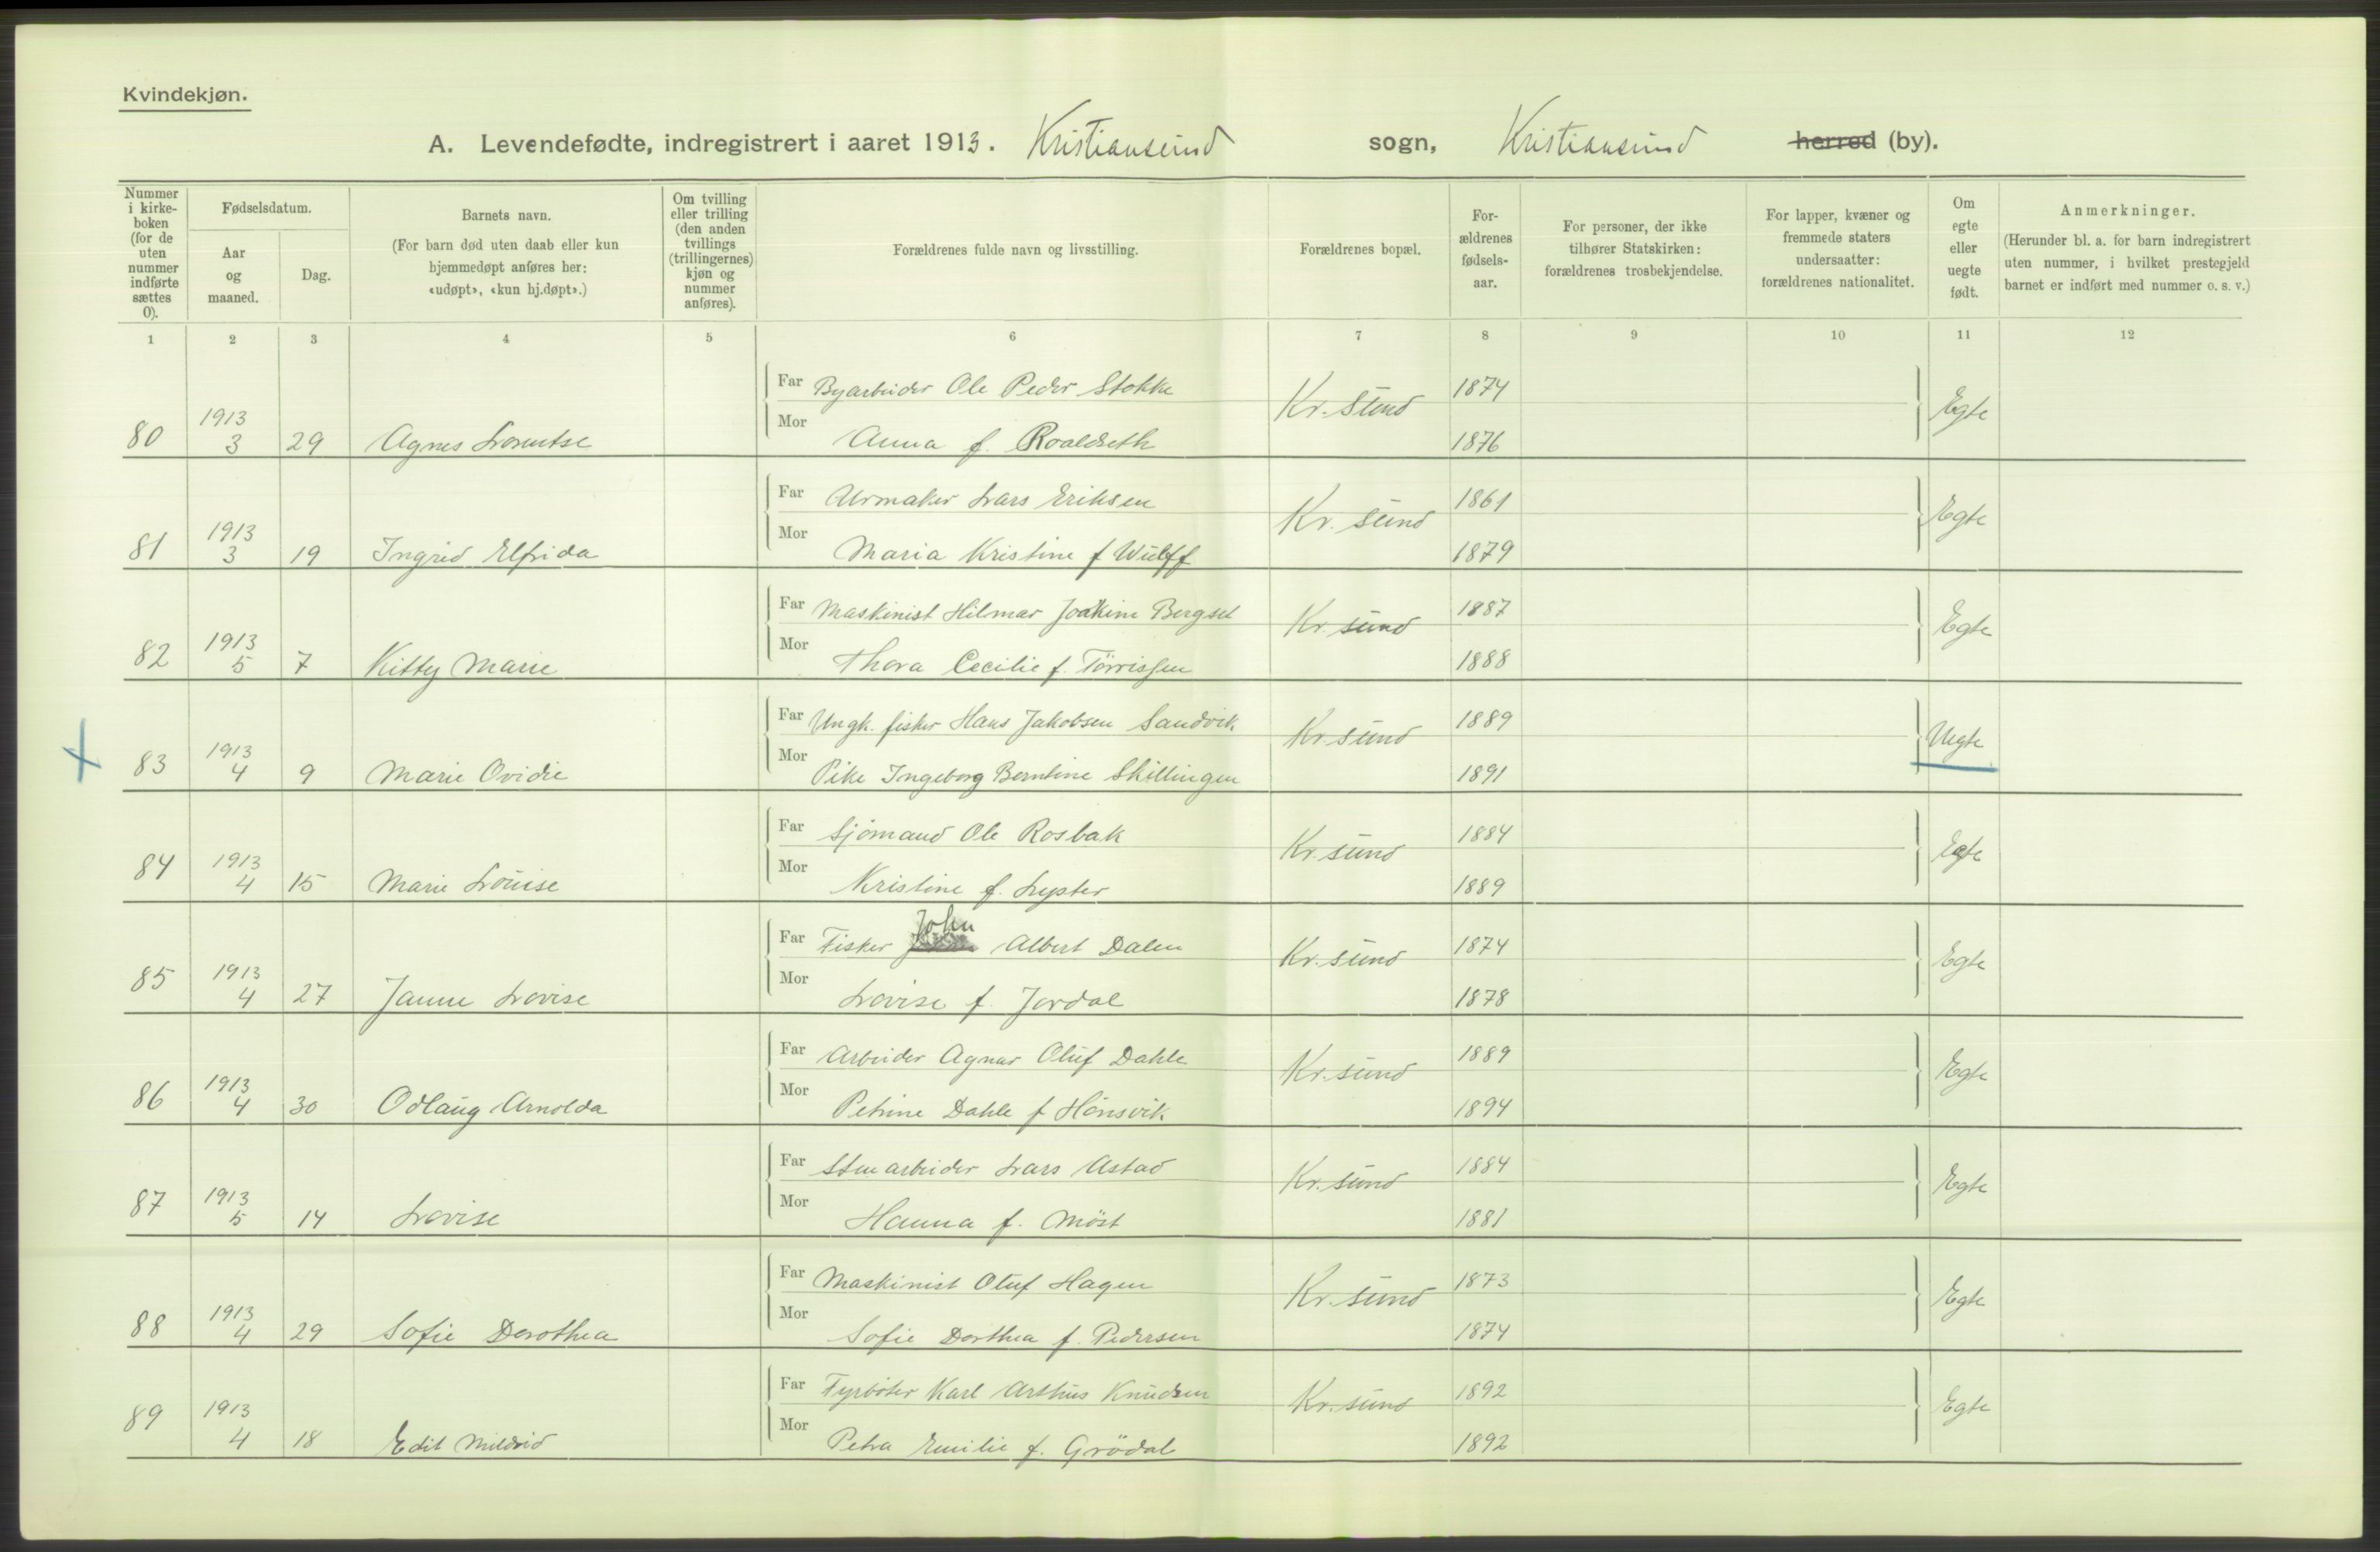 Kvindekjøn.
A. Levendefødte, indregistrert i aaret 1913. Kristiansund sogn, Kristiansund herred (by).
Nummer i kirkeboken (for de uten nummer indførte sættes 0).
Fødselsdatum.
Aar og maaned.
Dag.
Barnets navn.
(For barn død uten daab eller kun hjemmedøpt anføres her: «udøpt», «kun hj.døpt».)
Om tvilling eller trilling (den anden tvillings (trillingernes) kjøn og nummer anføres).
Forældrenes fulde navn og livsstilling.
Forældrenes bopæl.
Forældrenes fødselsaar.
For personer, der ikke tilhører Statskirken: forældrenes trosbekjendelse.
For lapper, kvæner og fremmede staters undersaatter: forældrenes nationalitet.
Om egte eller uegte født.
Anmerkninger.
(Herunder bl. a. for barn indregistrert uten nummer, i hvilket prestegjeld barnet er indført med nummer o. s. v.)
1 2 3 4 5 6 7 8 9 10 11 12
Far Byarbeider Ole Peder Stokke Kr. sund 1874 Egte
80 1913 3 29 Agnes Lorentse Mor Anna f. Roaldseth 1876
Far Urmaker Lars Eriksen Kr. sund 1861 Egte
81 1913 3 19 Ingrid Elfrida Mor Maria Kristine f Wulff 1879
Far Maskinist Hilmar Joakim Bergset Kr. sund 1887 Egte
82 1913 5 7 Kitty Marie Mor Thora Cecilie f. Tørrissen 1888
Far Ungk. fisker Hans Jakobsen Sandvik Kr. sund 1889 Uegte
83 1913 4 9 Marie Ovidie Mor Pike Ingeborg Berntine Skillingen 1891
Far Sjømand Ole Rosbak Kr. sund 1884 Egte
84 1913 4 15 Marie Louise Mor Kristine f. Lyster 1889
Far Fisker John Albert Dalen Kr. sund 1874 Egte
85 1913 4 27 Janne Lovise Mor Lovise f. Jordal 1878
Far Arbeider Agnar Oluf Dahle Kr. sund 1889 Egte
86 1913 4 30 Odlaug Arnolda Mor Petrine Dahle f Hønsvik 1894
Far Stenarbeider Lars Astad Kr. sund 1884 Egte
87 1913 5 14 Lovise Mor Hanna f. Møst 1881
Far Maskinist Oluf Hagen Kr. sund 1873 Egte
88 1913 4 29 Sofie Dorothea Mor Sofie Dorthea f. Pedersen 1874
Far Fyrbøter Karl Arthur Knudsen Kr. sund 1892 Egte
89 1913 4 18 Edit Mildrid Mor Petra Emilie f. Grødal 1892